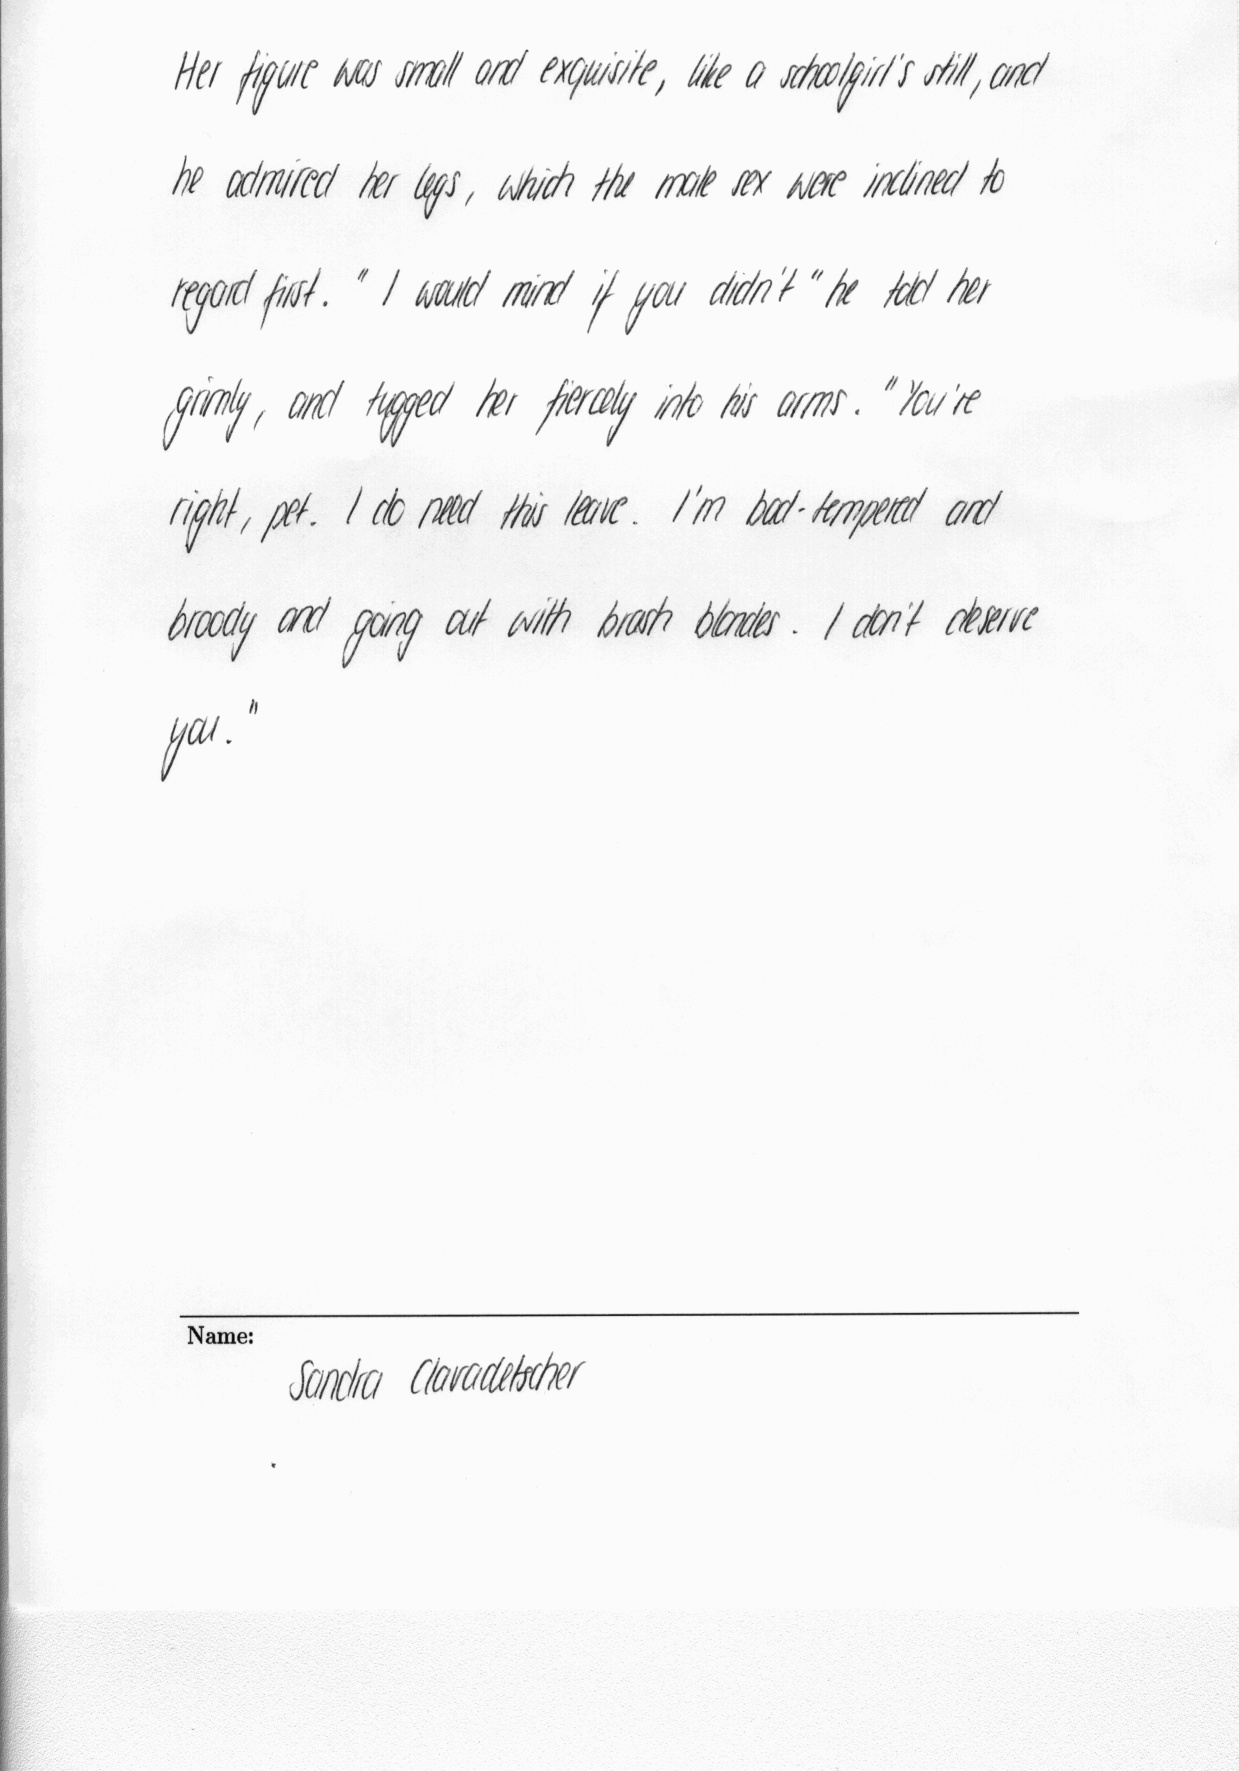 Her figure was small and exquisite, like a schoolgirl's still, and
he admired her legs, which the male sex were inclined to
regard first. " I would mind if you didn't " he told her
grimly, and tugged her fiercely into his arms. "You're
right, pet. I do need this leave. I'm bad-tempered and
broody and going out with brash blondes. I don't deserve
you."
Name:
Sandra Clavadetscher